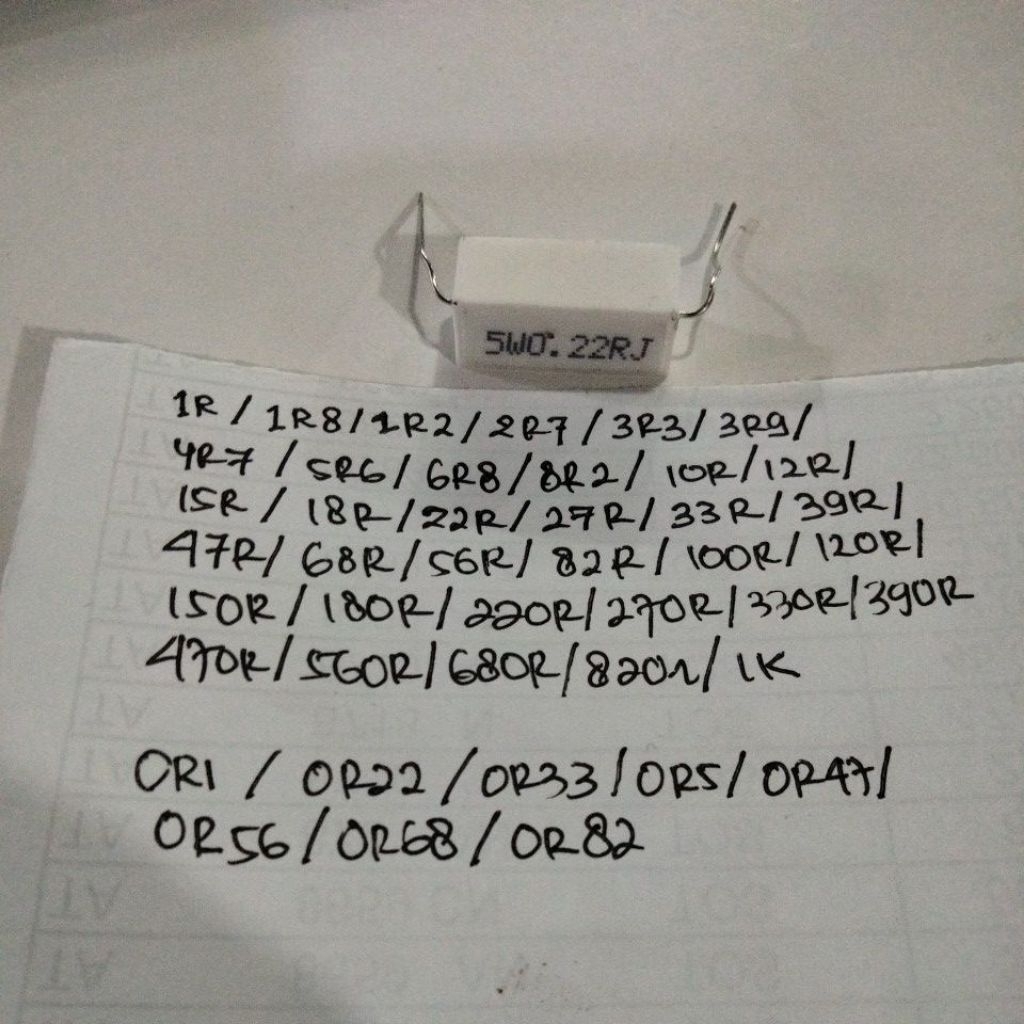 5W0.22RJ
1R / 1R8 / 1R2 / 2R7 / 3R3 / 3R9 /
4R7 / 5R6 / 6R8 / 8R2 / 10R / 12R /
15R / 18R / 22R / 27R / 33R / 39R /
47R / 68R / 56R / 82R / 100R / 120R /
150R / 180R / 220R / 270R / 330R / 390R
470R / 560R / 680R / 820R / 1K
0R1 / 0R22 / 0R33 / 0R5 / 0R47 /
0R56 / 0R68 / 0R82